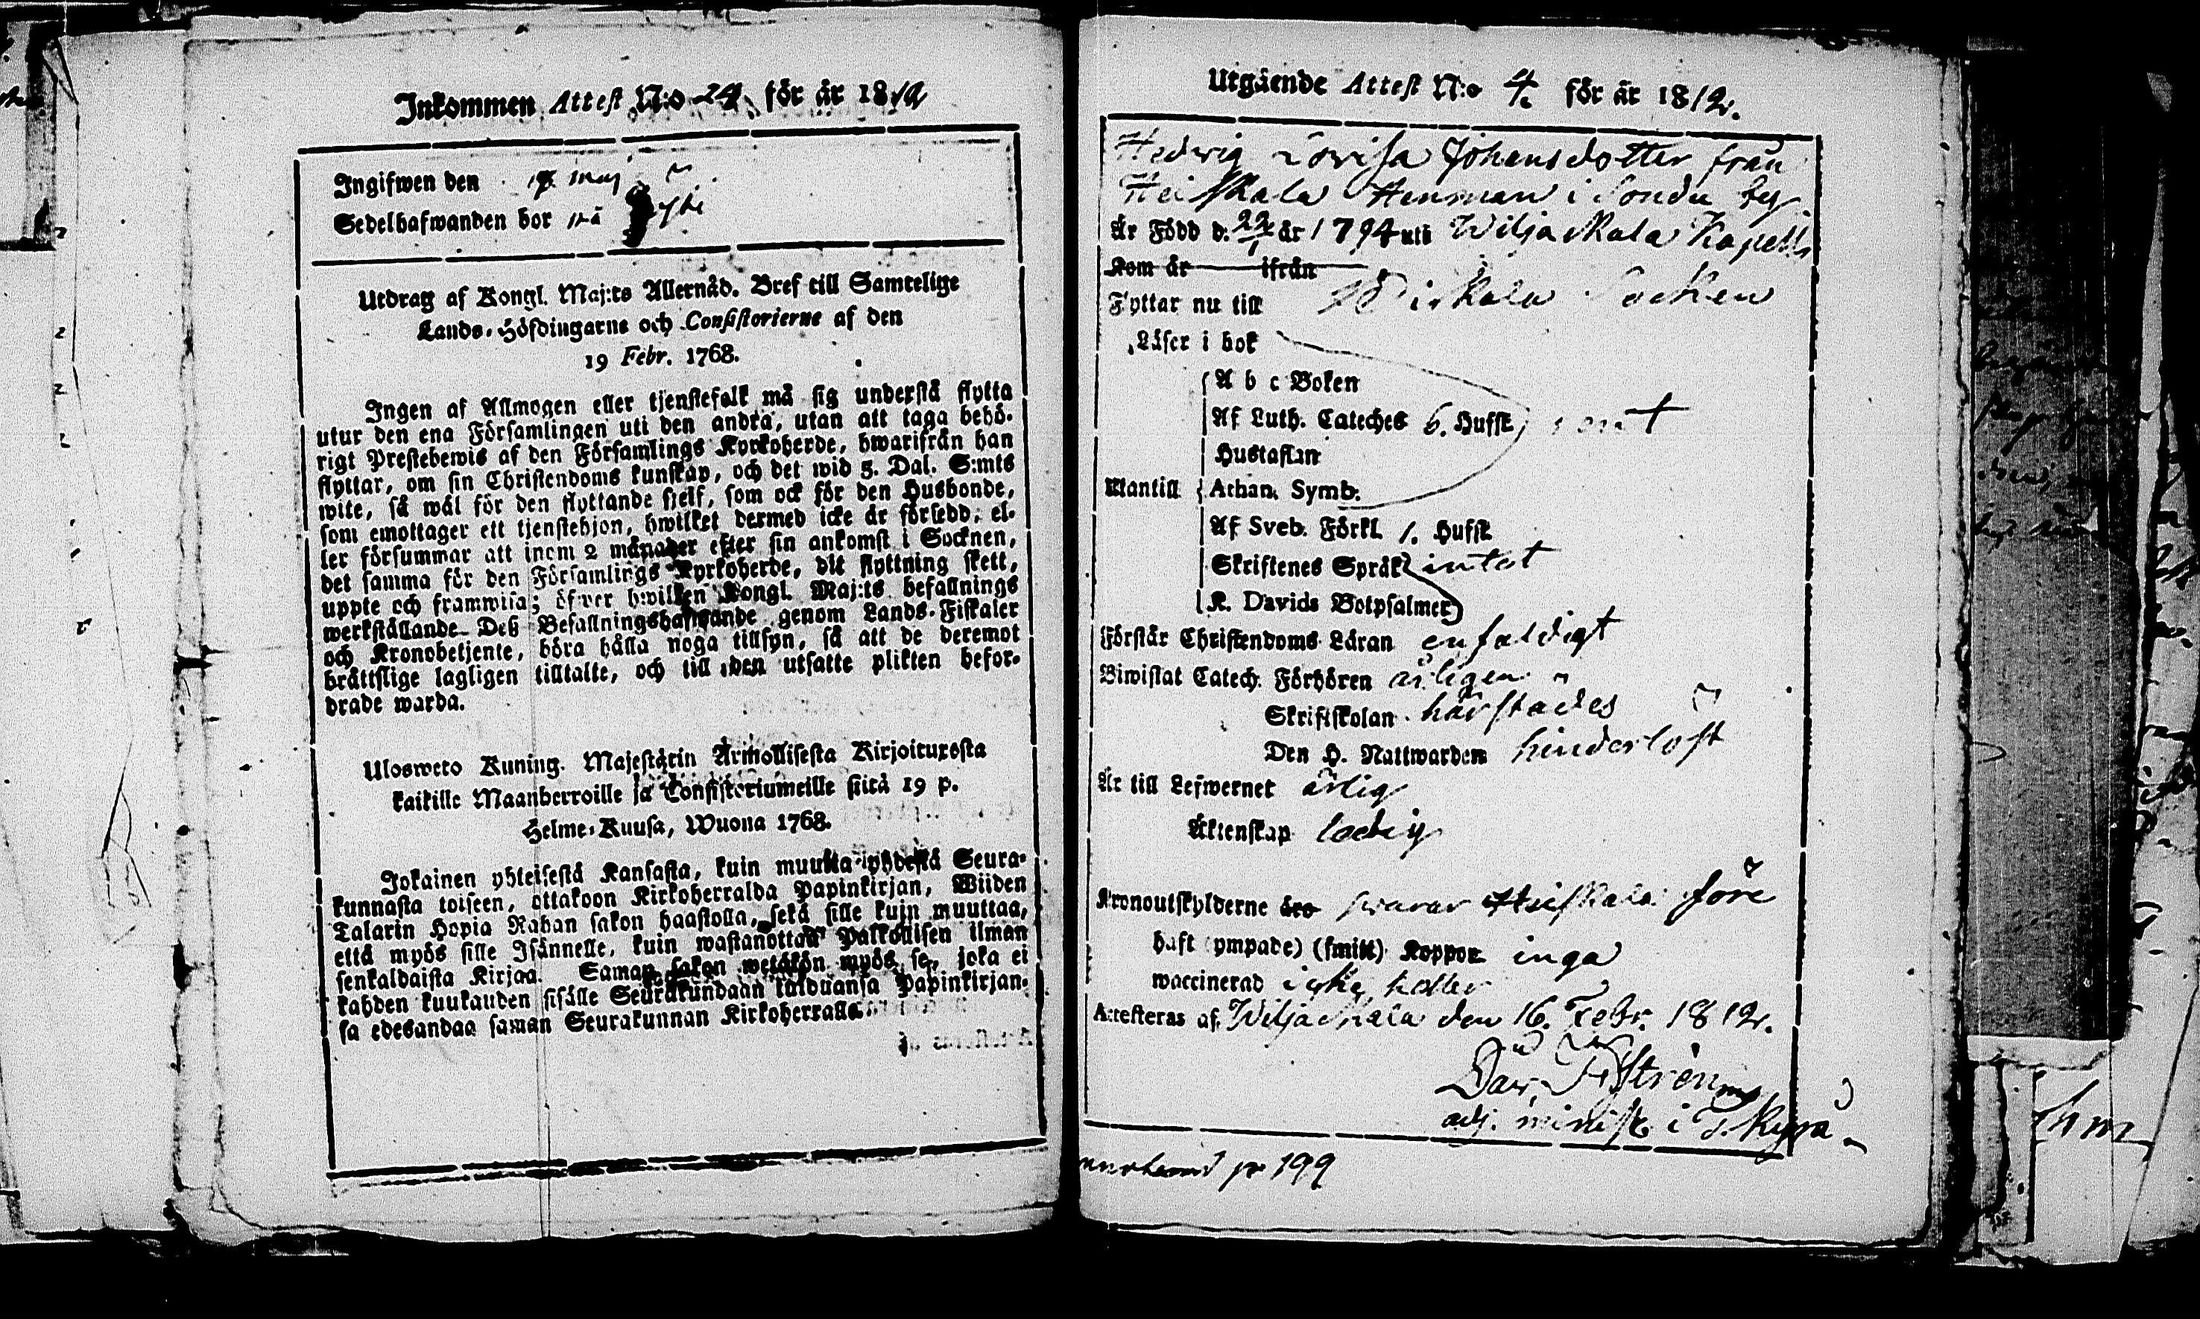 Inkommen Attest N:o 24 för år 1812
Ingifwen den 18 maj
Sedelhafwanden bor uti
Utdrag af Kongl. Maj:ts Allernåd. Bref till Samtelige
Lands-Höfdingarne och Consistorierne af den
19 Febr. 1768.
Ingen af Allmogen eller tjenstefolk må sig understå flytta
utur den ena Församlingen uti den andra, utan att taga behö-
rigt Prestebewis af den Församlings Kyrkoherde, hwarifrån han
flyttar, om sin Christendoms kunskap, och det wid 5. Dal. S:mts
wite, så wäl för den flyttande sjelf, som ock för den Husbonde,
som emottager ett tjenstehjon, hwilket dermed icke är försedd; el-
ler försummar att inom 2 månader efter sin ankomst i Socknen,
det samma för den Församlings Kyrkoherde, dit flyttning skett,
uppte och framwisa; öfwer hwilken Kongl. Maj:ts befallnings
werkställande Deß Befallningshafwande genom Lands-Fiskaler
och Kronobetjente, böra hålla noga tillsyn, så att de deremot
brättslige lagligen tilltalte, och till den utsatte plikten befor-
drade warda.
Ulosweto Kuning. Majestetin Armollisesta Kirjoituxesta
kaikille Maanherroille ja Consistoriumeille siitä 19 p.
Helme-Kuusa, Wuona 1768.
Jokainen yhteisestä Kansasta, kuin muutta yhdestä Seura-
kunnasta toiseen, ottakoon Kirkoherralda Papinkirjan, Wiiden
Talarin Hopia Rahan sakon haastolla, sekä sille kuin muuttaa,
että myös sille Isännelle, kuin wastanottaa Palkollisen ilman
senkaldaista Kirjaa. Saman sakon wetäkön myös se, joka ei
kahden kuukauden sisälle Seurakundaan tulduansa Papinkirjan-
sa edesandaa saman Seurakunnan Kirkoherralle.
Utgående Attest N:o 4. för år 1812.
Hedvig Lovisa Johansdotter från
Heiskala Henman i Sondu by
Är Född d. 22/1 år 1794 uti Wiljaskala Kapell
Kom år ifrån
Flyttar nu till Birkala Socken
Läser i bok
A b c Boken
Af Luth. Cateches 6. Hufst. rent
Hustaflan
Utantill Athan. Symb.
Af Sveb. Förkl. 1. Hufst
Skriftenes Språk intet
K. Davids Botpsalmer
Förstår Christendoms Läran enfaldigt
Biwistat Catech. Förhören årligen
Skriftskolan härstädes
Den H. Nattwarden hinderlöst
Är till Lefwernet ärlig
Äktenskap ledig
Kronoutskylderne äro swarar Heiskala före
haft (ympade) (smitt) Koppor inga
waccinerad icke heller
Attesteras af Wiljaskala den 16. Febr. 1812.
adj. minist. i T. Kyrå
199